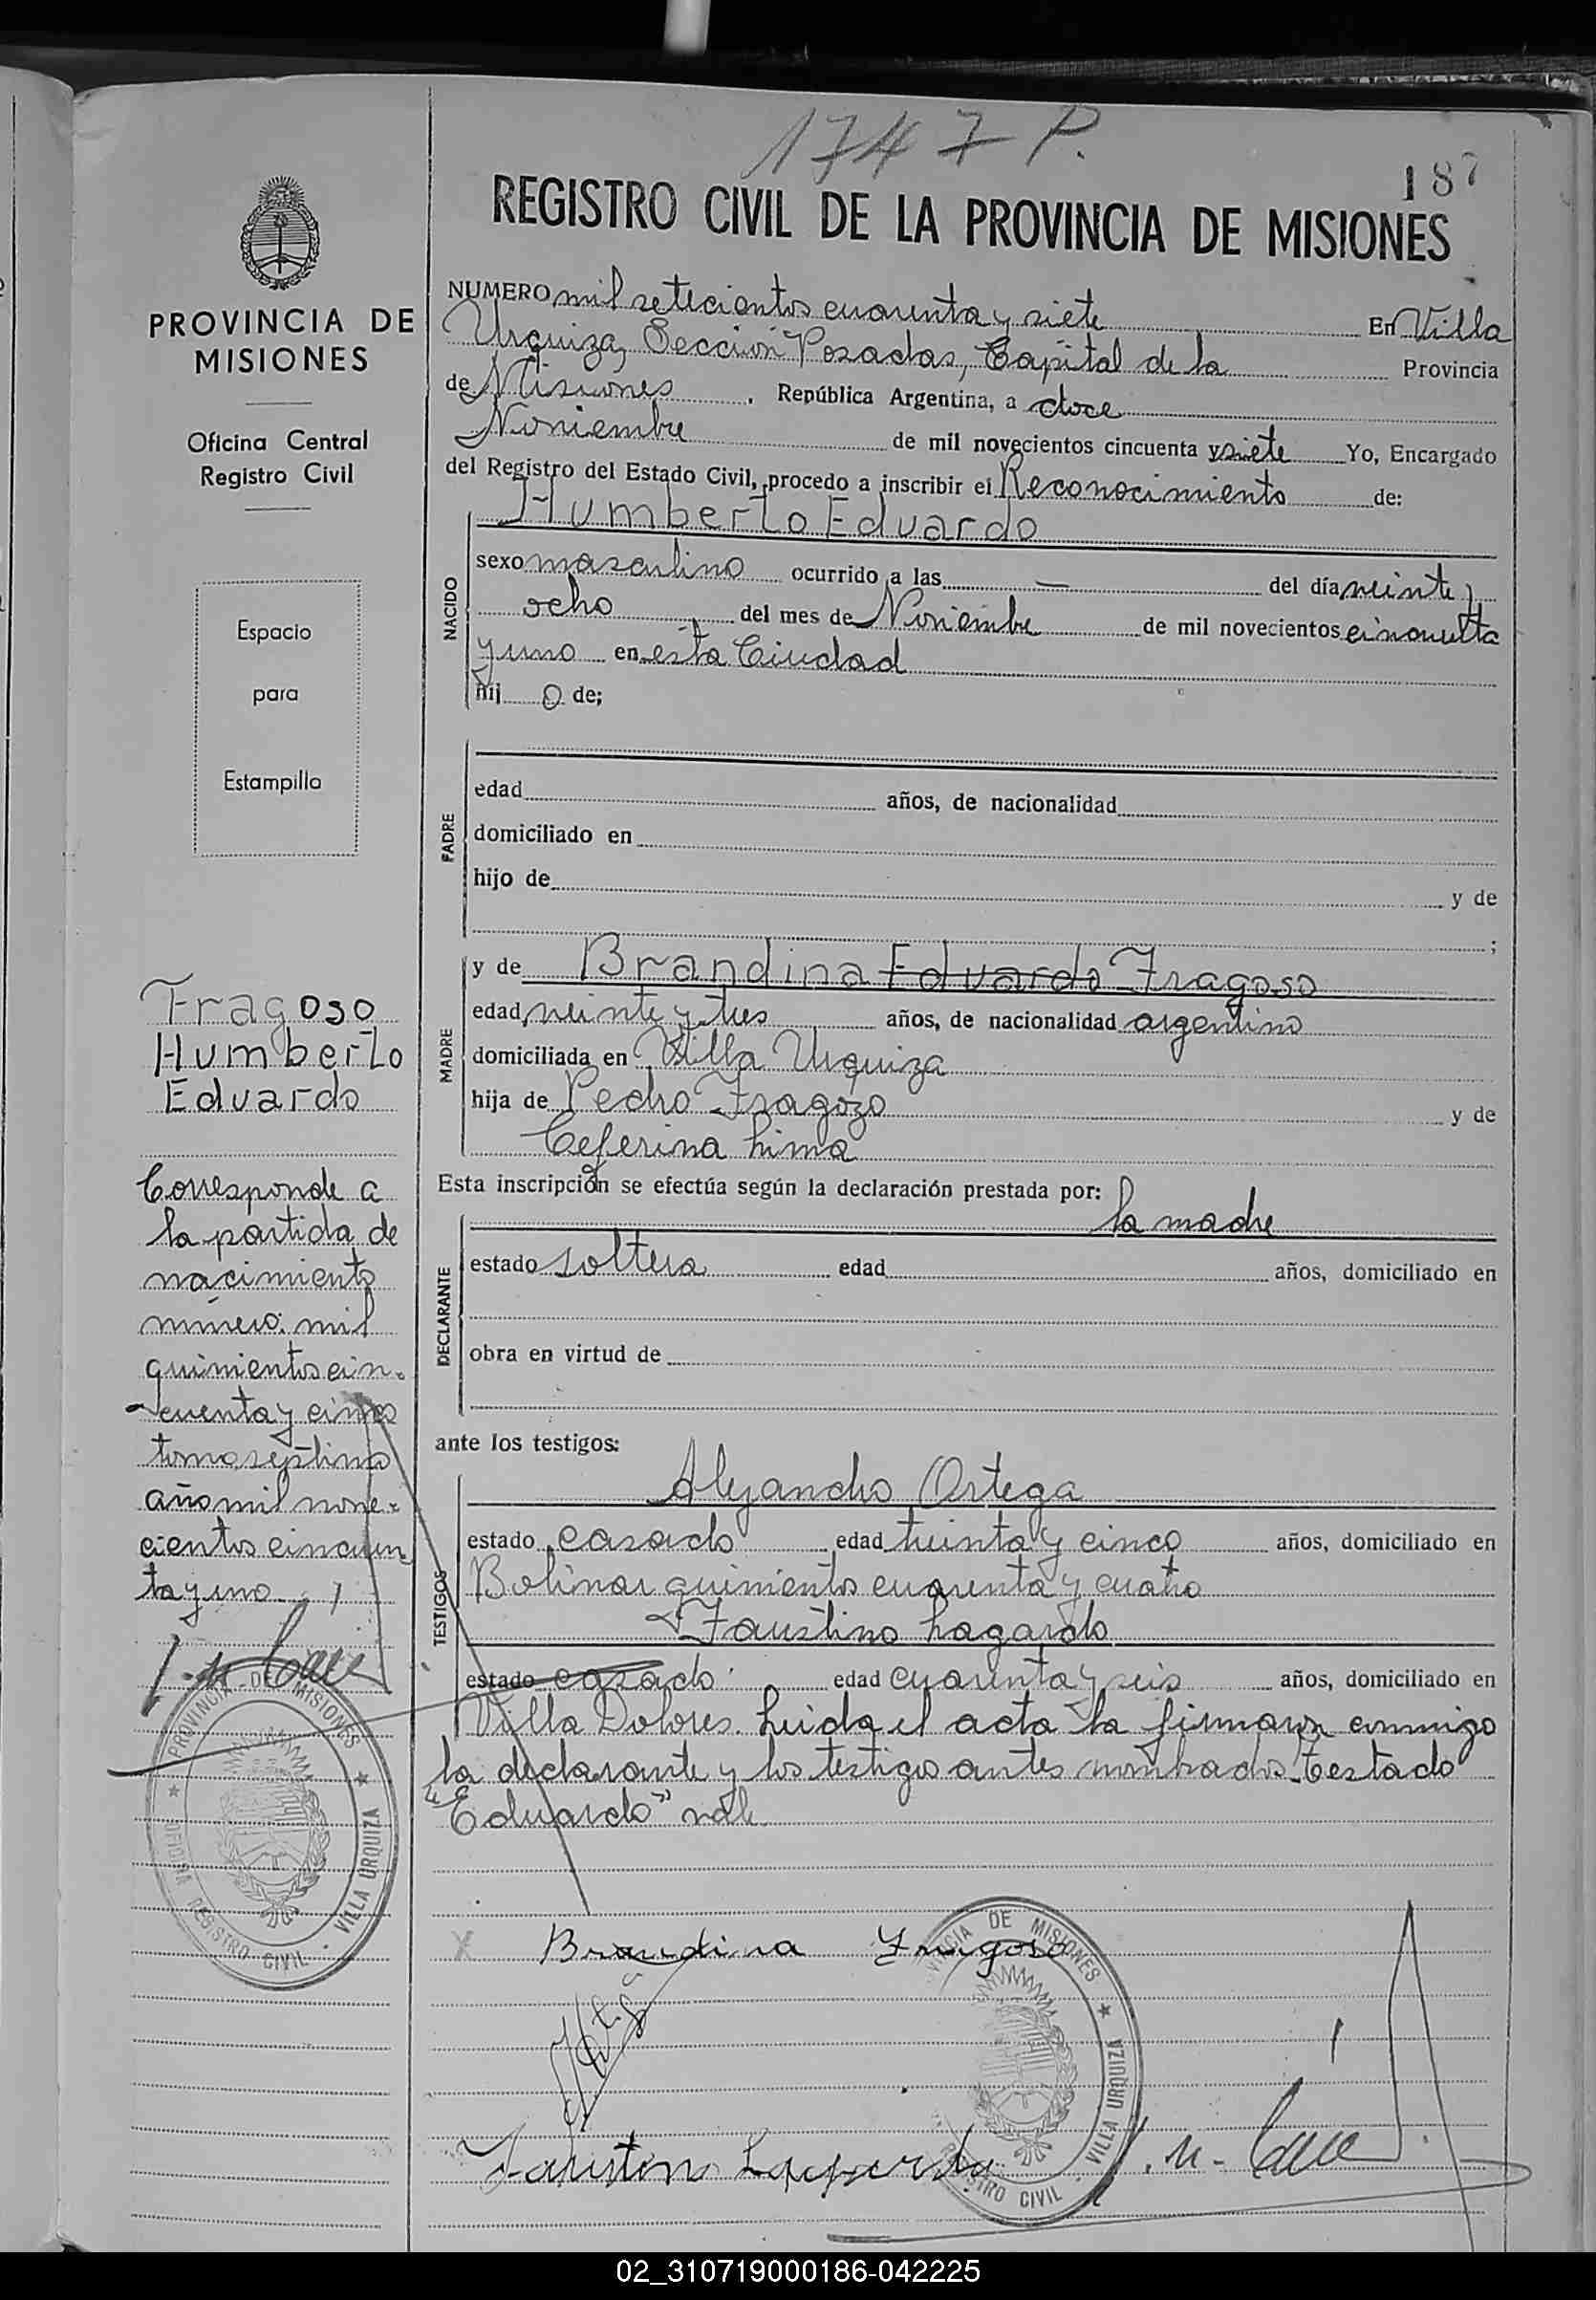 1747 P.
187
REGISTRO CIVIL DE LA PROVINCIA DE MISIONES
PROVINCIA DE
MISIONES
Oficina Central
Registro Civil
Espacio
para
Estampilla
Fragoso
Humberto
Eduardo
Corresponde a
la partida de
nacimiento
número: mil
quinientos cin-
cuenta y cinco
tomo septimo
año mil nove-
cientos cincuen
ta y uno
PROVINCIA DE MISIONES
OFICINA REGISTRO CIVIL - VILLA URQUIZA
NUMERO mil setecientos cuarenta y siete En Villa
Urquiza, Sección Posadas, Capital de la Provincia
de Misiones . República Argentina, a doce
Noviembre de mil novecientos cincuenta y siete Yo, Encargado
del Registro del Estado Civil, procedo a inscribir el Reconocimiento de:
NACIDO
Humberto Eduardo
sexo masculino ocurrido a las — del día veinte y
ocho del mes de Noviembre de mil novecientos cincuenta
y uno en esta Ciudad
hij o de;
PADRE
edad años, de nacionalidad
domiciliado en
hijo de y de
;
MADRE
y de Brandina Eduardo Fragoso
edad veinte y tres años, de nacionalidad argentino
domiciliada en Villa Urquiza
hija de Pedro Fragozo y de
Ceferina Lima
Esta inscripción se efectúa según la declaración prestada por:
la madre
DECLARANTE
estado soltera edad años, domiciliado en
obra en virtud de
ante los testigos:
TESTIGOS
Alejandro Ortega
estado casado edad treinta y cinco años, domiciliado en
Bolivar quinientos cuarenta y cuatro
Faustino Lagardo
estado casado edad cuarenta y seis años, domiciliado en
Villa Dolores. Leida el acta la firmaron conmigo
la declarante y los testigos antes nombrados. Testado
"Eduardo" vale
Brandina Fragoso
PROVINCIA DE MISIONES
REGISTRO CIVIL VILLA URQUIZA
02_310719000186-042225